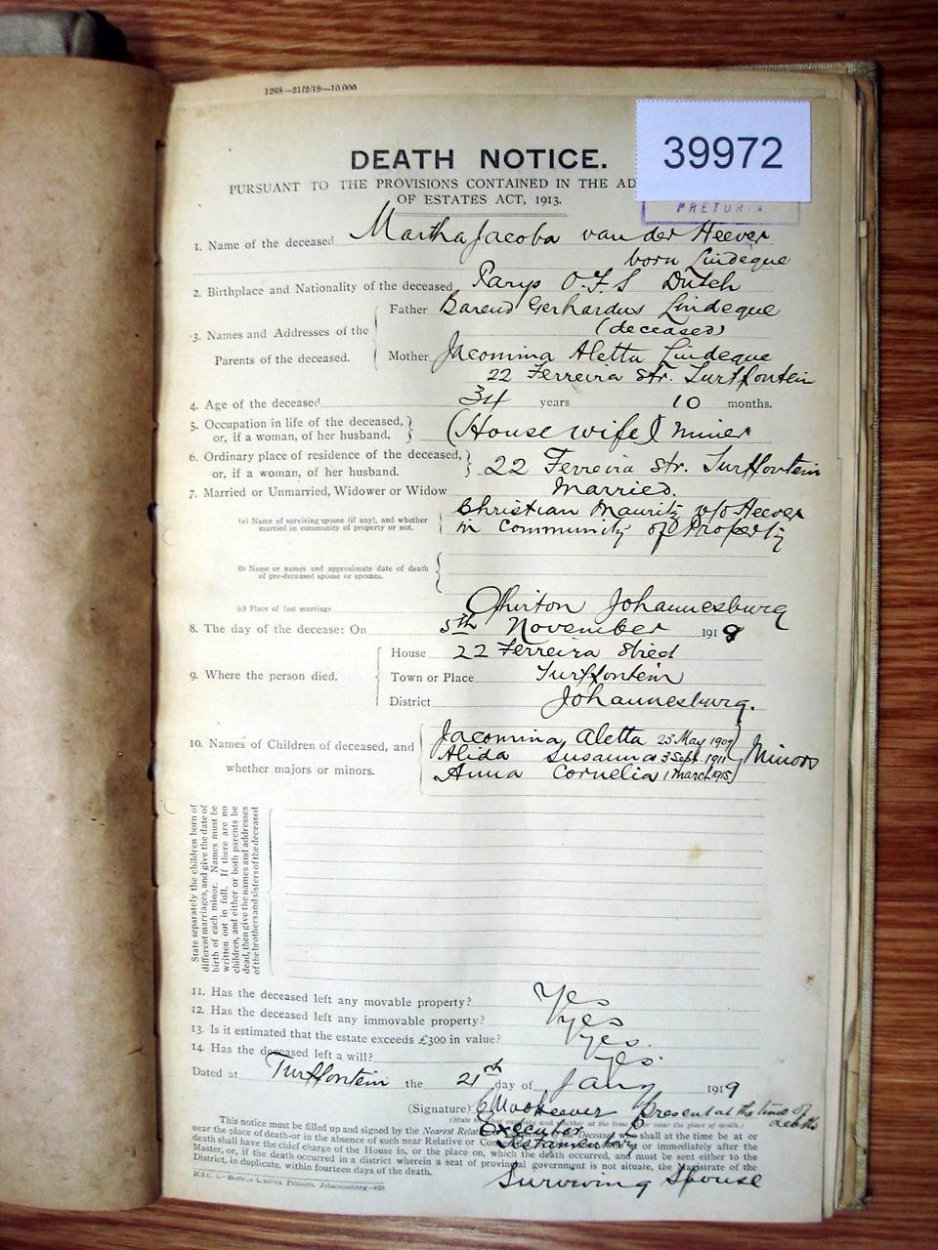 1268—21/2/19—10.000
39972
DEATH NOTICE.
PURSUANT TO THE PROVISIONS CONTAINED IN THE AD
OF ESTATES ACT, 1913.
PRETORIA
1. Name of the deceased Martha Jacoba van der Heever
born Lindeque
2. Birthplace and Nationality of the deceased Parys O.F.S Dutch
3. Names and Addresses of the Parents of the deceased.
Father Barend Gerhardus Lindeque
(deceased)
Mother Jacomina Aletta Lindeque
22 Ferreira Str. Turffontein
4. Age of the deceased 34 years 10 months.
5. Occupation in life of the deceased,
or, if a woman, of her husband. (House wife) miner
6. Ordinary place of residence of the deceased,
or, if a woman, of her husband. 22 Ferreira Str. Turffontein
7. Married or Unmarried, Widower or Widow Married.
(a) Name of surviving spouse (if any), and whether
married in community of property or not.
Christian Mauritz v/d Heever
in Community of Property
(b) Name or names and approximate date of death
of pre-deceased spouse or spouses.
(c) Place of last marriage Johannesburg
8. The day of the decease: On 5th November 1918
9. Where the person died.
House 22 Ferreira Street
Town or Place Turffontein
District Johannesburg.
10. Names of Children of deceased, and
whether majors or minors.
Jacomina Aletta 25 May 1909
Alida Susanna 3 Sept. 1911 Minors
Anna Cornelia 1 March 1915
State separately the children born of
different marriages, and give the date of
birth of each minor. Names must be
written out in full. If there are no
children, and either or both parents be
dead, then give the names and addresses
of the brothers and sisters of the deceased
11. Has the deceased left any movable property? Yes
12. Has the deceased left any immovable property? Yes
13. Is it estimated that the estate exceeds £300 in value? Yes.
14. Has the deceased left a will? Yes.
Dated at Turffontein the 21 day of Jany 1919
(Signature) Present at the time of
death
Executor
Testamentary
This notice must be filled up and signed by the Nearest Relative shall at the time be at or
near the place of death—or in the absence of such near Relative or or immediately after the
death shall have the chief charge of the House in, or the place on, which the death occurred, and must be sent either to the
Master, or, if the death occurred in a district wherein a seat of provincial government is not situate, the Magistrate of the
District, in duplicate, within fourteen days of the death.
Surviving Spouse